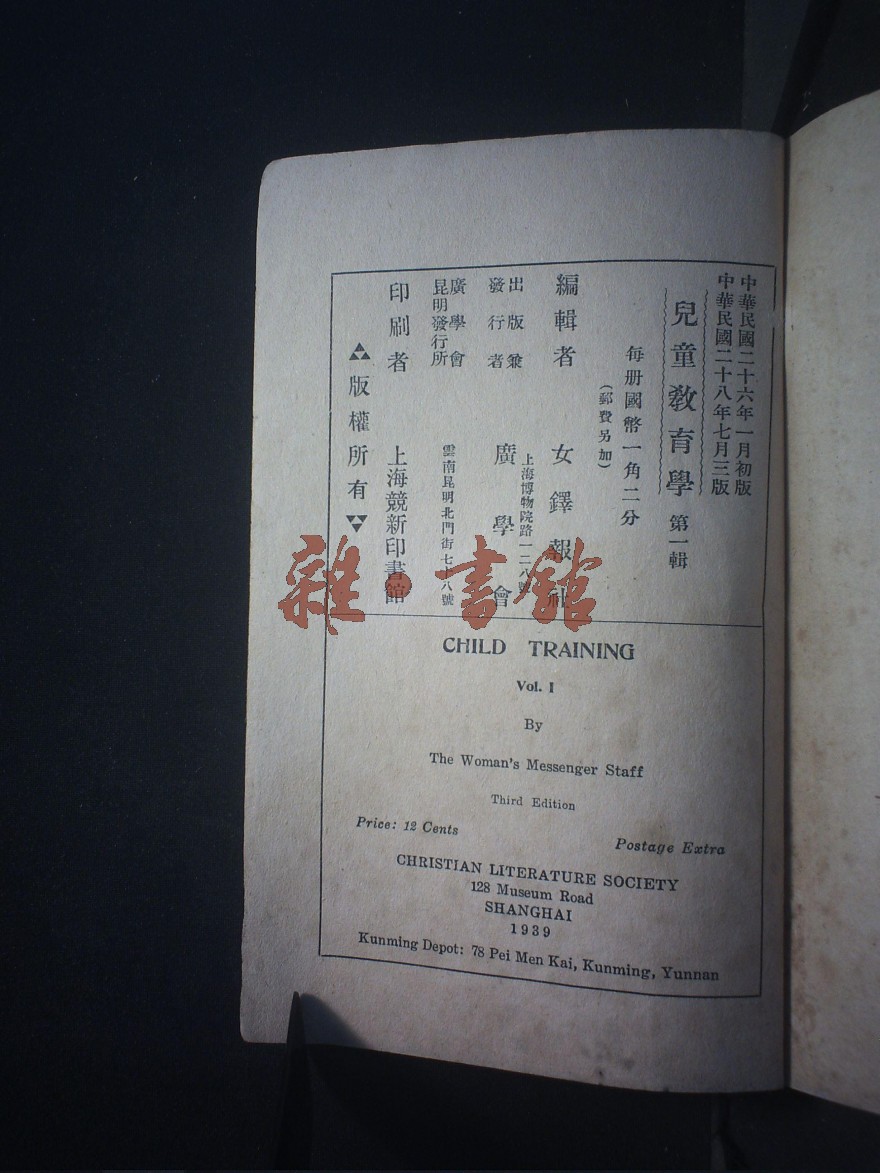 中華民國二十六年一月初版
中華民國二十八年七月三版
兒童教育學 第一輯
每册國幣一角二分
(郵費另加)
編輯者 女鐸報社
出版兼
發行者
上海博物院路一二八號
廣學會
廣學會
昆明發行所
雲南昆明北門街七十八號
印刷者 上海競新印書館
版權所有
雜·書館
CHILD TRAINING
Vol. I
By
The Woman's Messenger Staff
Third Edition
Price: 12 Cents
Postage Extra
CHRISTIAN LITERATURE SOCIETY
128 Museum Road
SHANGHAI
1939
Kunming Depot: 78 Pei Men Kai, Kunming, Yunnan